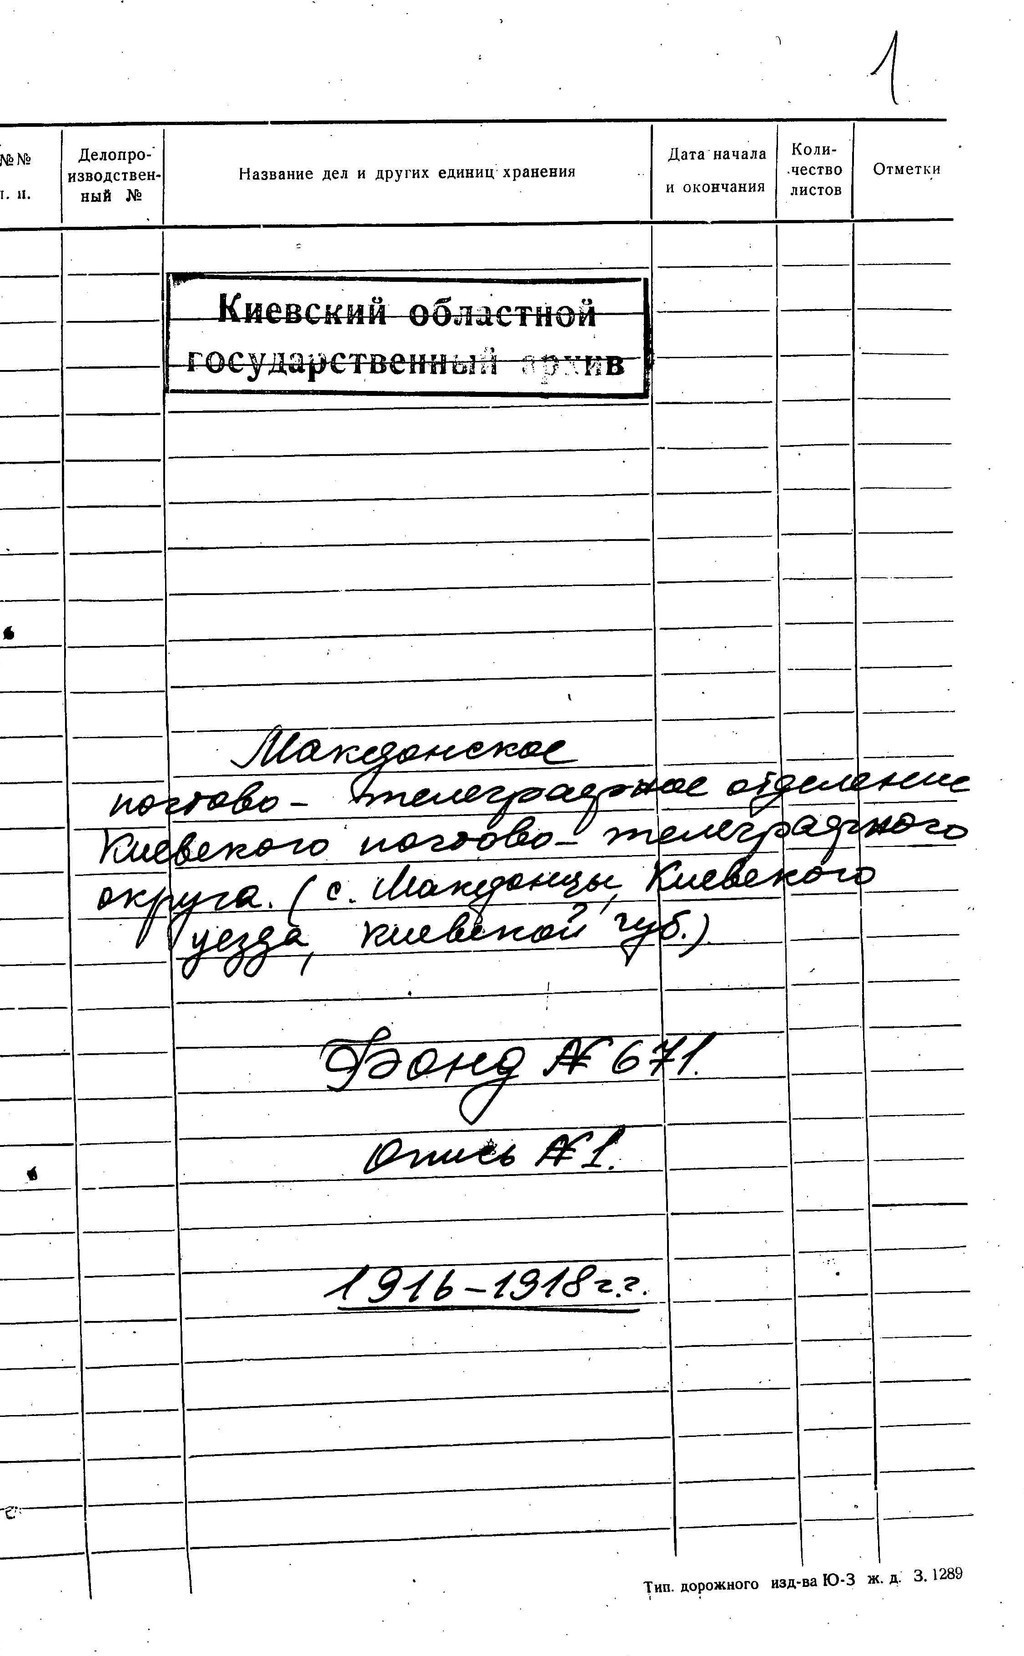 1
№№
п. п.
Делопро-
изводствен-
ный №
Название дел и других единиц хранения
Дата начала
и окончания
Коли-
чество
листов
Отметки
Киевский областной
государственный архив
Македонское
почтово - телеграфное отделение
Киевского почтово - телеграфного
округа. (с. Македонцы, Киевского
уезда, киевской губ.)
Фонд № 671.
Опись № 1.
1916 - 1918 г.г.
Тип. дорожного изд-ва Ю-З ж. д. З. 1289